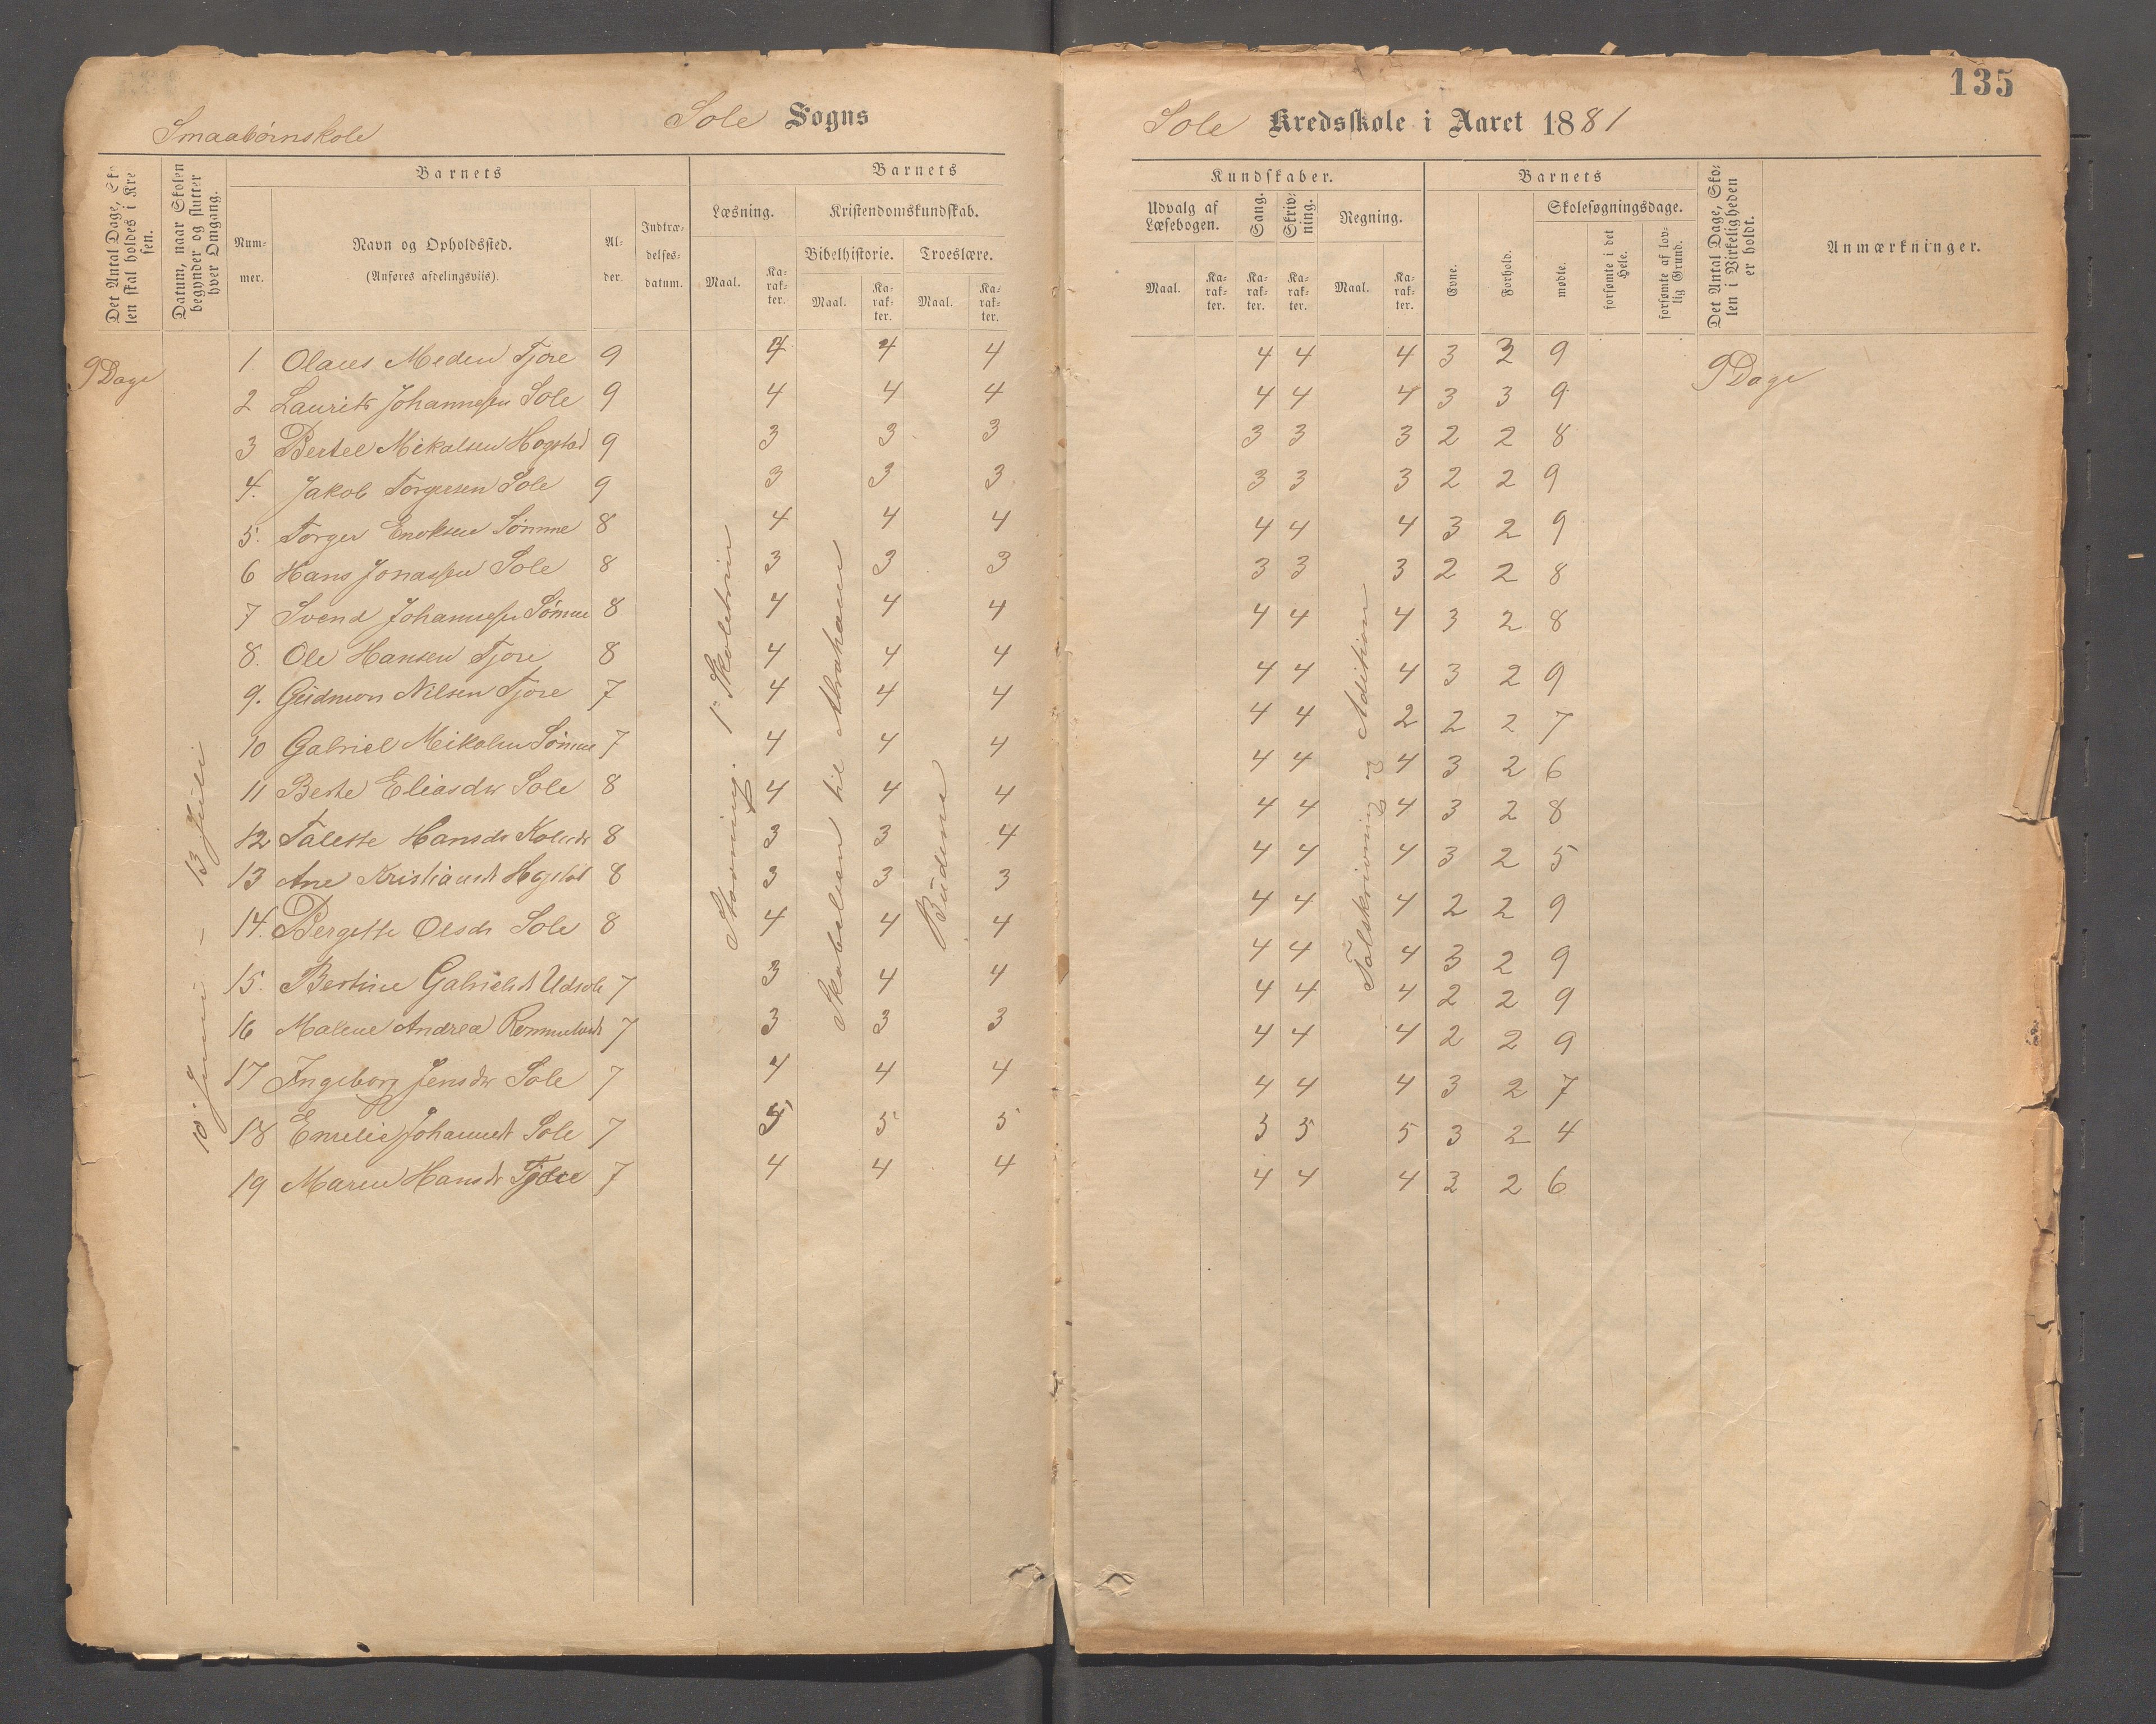 135
Smaabørnskole
Sole Sogns
Sole Kredsskole i Aaret 1881
Det Antal Dage, Sko-
len skal holdes i Kre
sen.
Datum, naar Skolen
begynder og slutter
hver Omgang.
Barnets
Num-
mer.
Navn og Opholdssted.
(Anføres afdelingsviis).
Al-
der.
Indtræ-
delses-
datum.
Barnets
Læsning.
Maal.
Ka-
rak-
ter.
Kristendomskundskab.
Bibelhistorie.
Maal.
Ka-
rak-
ter.
Troeslære.
Maal.
Ka-
rak-
ter.
Kundskaber.
Udvalg af
Læsebogen.
Maal.
Ka-
rak-
ter.
Sang.
Ka-
rak-
ter.
Skriv-
ning.
Ka-
rak-
ter.
Regning.
Maal.
Ka-
rak-
ter.
Barnets
Evne.
Forhold.
Skolesøgningsdage.
mødte.
forsømte i det
Hele.
forsømte af lov-
lig Grund.
Det Antal Dage, Sko-
len i Virkeligheden
er holdt.
Anmærkninger.
9 Dage
10 Juni - 13 Juli
Stavning. 1 Skoletrin
Skabelsen til Abraham
Budene
Talskrivning og Adition
9 Dage
1 Olaus Meden Tjore 9 4 4 4 4 4 4 3 3 9
2 Laurits Johannesen Sole 9 4 4 4 4 4 4 3 3 9
3 Bertel Mikalsen Hogstad 9 3 3 3 3 3 3 2 2 8
4. Jakob Torgersen Sole 9 3 3 3 3 3 3 2 2 9
5. Torger Enoksen Sömme 8 4 4 4 4 4 4 3 2 9
6 Hans Jonassen Sole 8 3 3 3 3 3 3 2 2 8
7 Svend Johannesen Sömme 8 4 4 4 4 4 4 3 2 8
8. Ole Hansen Tjore 8 4 4 4 4 4 4 3 2 9
9. Gudmon Nilsen Tjore 7 4 4 4 4 4 2 2 2 7
10 Gabriel Mikalsen Sömme 7 4 4 4 4 4 4 3 2 6
11 Berte Eliasdr Sole 8 4 4 4 4 4 4 3 2 8
12 Talette Hansdr 8 3 3 4 4 4 4 3 2 5
13 Ane 8 3 3 3 4 4 4 2 2 9
14. Bergitte Olsdr Sole 8 4 4 4 4 4 4 3 2 9
15. Bertine Gabrielsdt Udsole 7 3 4 4 4 4 4 2 2 9
16 Malene Andrea 7 3 3 3 4 4 4 2 2 9
17 Ingeborg Jensdr Sole 7 4 4 4 4 4 4 3 2 7
18 Emelie Johannesdt Sole 7 5 5 5 3 5 5 3 2 4
19 Maren Hansdr Tjore 7 4 4 4 4 4 4 3 2 6